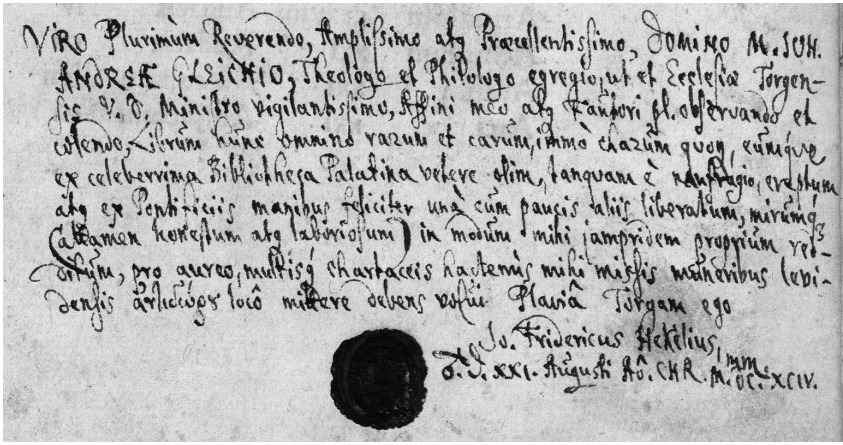 VIRO Plurimùm Reverendo, Amplissimo atq Præcellentissimo, DOMINO M. IOH.
ANDREÆ GLEICHIO, Theologo et Philologo egregio, ut et Ecclesiæ Torgen-
sis V. D. Ministro vigilantissimo, Affini meo atq Fautori pl. observando et
colendo, Librum hunc omnino rarum et carum, immò charum quoq, eumque
ex celeberrima Bibliotheca Palatina vetere olim, tanquam è naufragio, ereptum
atq ex Pontificiis manibus feliciter unà cum paucis aliis liberatum, mirumq
(attamen honestum atq laboriosum) in modum mihi jampridem proprium red-
ditum, pro aureo, multisq chartaceis hactenùs mihi missis muneribus levi-
densis locô mittere debens volui Plaviâ Torgam ego
Jo. Fridericus Hekelius, mm.
d. XXI. Augusti Aô. CHR. M.DC.XCIV.